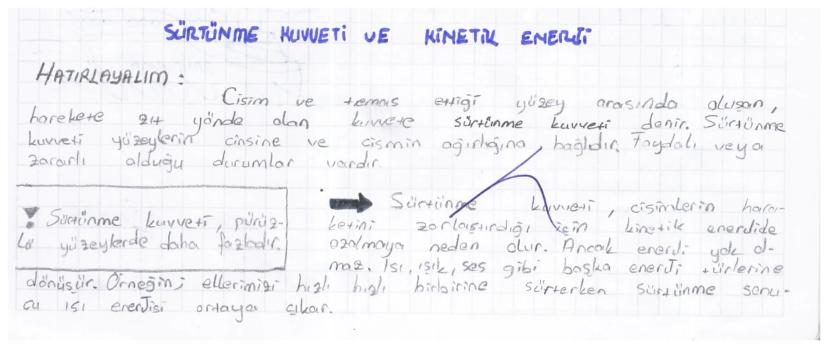 SÜRTÜNME KUVVETİ VE KİNETİK ENERJİ
HATIRLAYALIM :
Cisim ve temas ettiği yüzey arasında oluşan,
harekete zıt yönde olan kuvvete sürtünme kuvveti denir. Sürtünme
kuvveti yüzeylerin cinsine ve cismin ağırlığına bağlıdır. Faydalı veya
zararlı olduğu durumlar vardır.
! Sürtünme kuvveti, pürüz-
lü yüzeylerde daha fazladır.
➡ Sürtünme kuvveti, cisimlerin hare-
ketini zorlaştırdığı için kinetik enerjide
azalmaya neden olur. Ancak enerji yok ol-
maz. Isı, ışık, ses gibi başka enerji türlerine
dönüşür. Örneğin; ellerimizi hızlı hızlı birbirine sürterken sürtünme sonu-
cu ısı enerjisi ortaya çıkar.